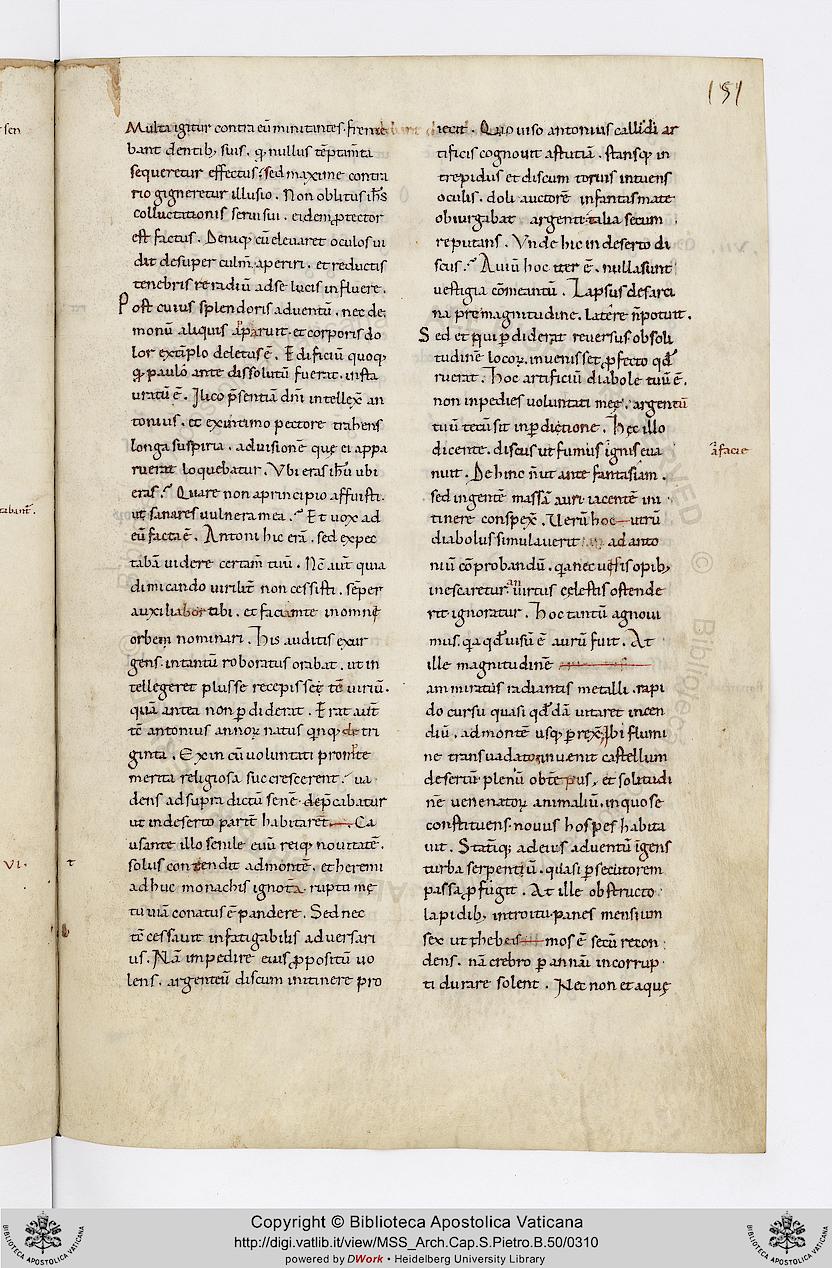 151
Multa igitur contra eū minitantes. frende
bant dentib; suis. qđ nullus tēptam̄ta
sequeretur effectus; sed maxime contra
rio gigneretur illusio. Non oblitus ih̄s
colluctationis serui sui. eidem ꝓtector
est factus. Deniq; cū eleuaret oculos ui
dit desuper culm̄ aperiri. et reductis
tenebris re radiū ad se lucis influere.
Post cuius splendoris aduentū. nec de
monū aliquis apparuit. et corporis do
lor extēplo deletus ē. Edificiū quoq;
qđ paulo ante dissolutū fuerat. insta
uratū ē. Ilico p̄sentiā dn̄i intellex̄ an
tonius. et ex intimo pectore trahens
longa suspiria. ad uisionē que ei appa
ruerat loquebatur. Vbi eras ih̄u ubi
eras? Quare non a principio affuisti.
ut sanares uulnera mea? Et uox ad
eū facta ē. Antoni hic erā. sed expec
tabā uidere certam̄ tuū. Nc̄ aut̄ quia
dimicando uirilit̄ non cessisti. sēper
auxiliabor tibi. et faciam te in omnē
orbem nominari. His auditis exur
gens. in tantū roboratus orabat. ut in
tellegeret plus se recepisse tē uiriū.
quā antea non ꝑdiderat. Erat aut̄
tē antonius annoꝝ natus qnq; de tri
ginta. Exin cū uoluntati promte
merita religiosa succrescerent. ua
dens ad supra dictū senē. dep̄cabatur
ut in deserto parit̄ habitarēt. Ca
usante illo senile euū reiq; nouitatē.
solus contendit ad montē. et heremi
adhuc monachis ignota. rupto me
tu uiā conatus ē pandere. Sed nec
tē cessauit infatigabilis aduersari
us. Nā impedire eius ꝓpositū uo
lens. argenteū discum in itinere pro
iecit. Quo uiso antonius callidi ar
tificis cognouit astutiā. stansq; in
trepidus et discum toruis intuens
oculis. doli auctorē in fantasmate
obiurgabat argenti. talia secum
reputans. Vnde hic in deserto di
scus? Auiū hoc iter ē. nulla sunt
uestigia cōmeantū. Lapsus de sarci
na pre magnitudine. latere n̄ potuit.
Sed et qui ꝑdiderat reuersus obsoli
tudinē locoꝝ. inuenisset ꝓfecto qđ
ruerat. Hoc artificiū diabole tuū ē.
non inpedies uoluntati meę. argentū
tuū tecū sit in ꝑdictione. Hęc illo
dicente. discus ut fumus ignis eua
nuit. Dehinc n̄ ut ante fantasiam.
sed ingentē massā auri iacentē in i
tinere conspex̄. Verū hoc utrū
diabolus simulauerit ad anto
niū cōprobandū. q̄a nec uestis opib;
inescaretur. an uirtus celestis ostende
rit ignoratur. Hoc tantū agnoui
mus. q̄a qđ uisū ē aurū fuit. At
ille magnitudinē
ammiratus radiantis metalli. rapi
do cursu quasi qđdā uitaret incen
diū. ad montē usq; ꝑrex̄. Ibi flumi
ne transuadato inuenit castellum
desertū plenū obtē pus, et solitudi
nē uenenatoꝝ animaliū. in quo se
constituens. nouus hospes habita
uit. Statiq; ad eius aduentū īgens
turba serpentiū. quasi ꝑsecutorem
passa ꝓfugit. At ille obstructo
lapidib; introitu. panes mensium
sex ut thebeis mos ē secū recon
dens. nā crebro ꝑ annū incorrup
ti durare solent. Nec non et aquę
ā facie
VI.
t